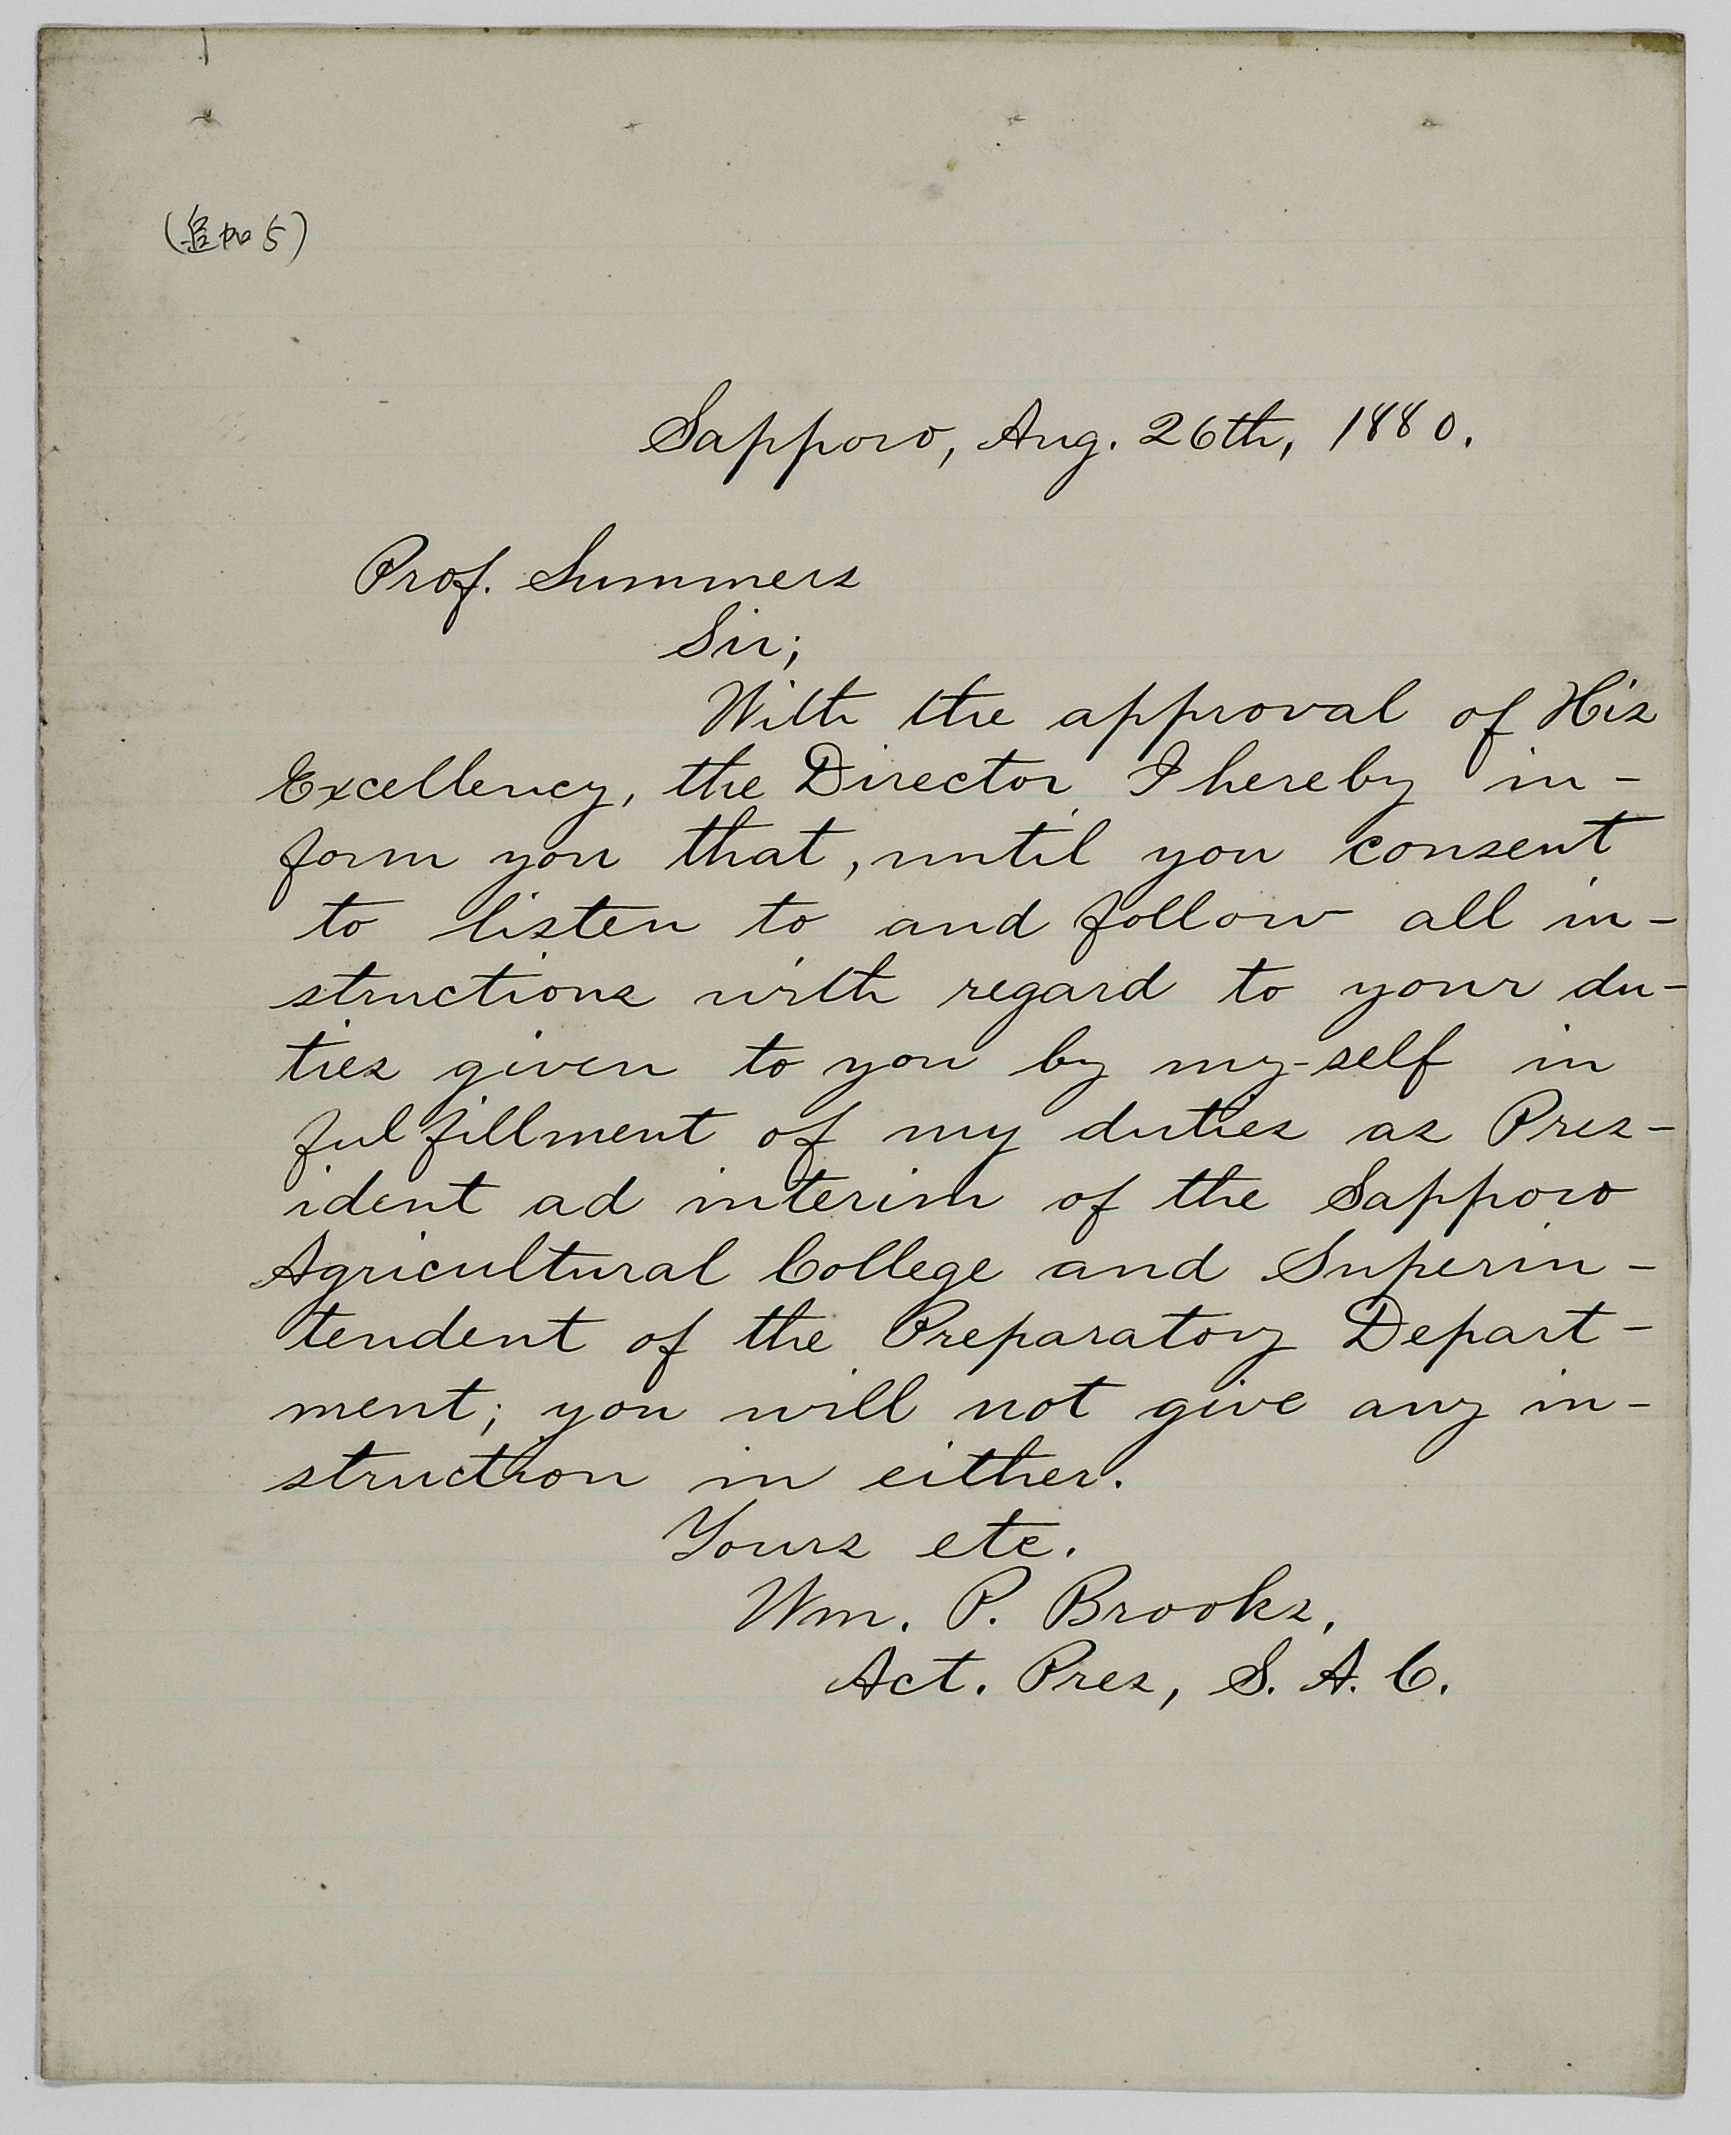 (追加5)
Sapporo, Aug. 26th, 1880.
Prof. Summers
Sir;
With the approval of His
Excellency, the Director, I hereby in-
form you that, until you consent
to listen to and follow all in-
structions with regard to your du-
ties given to you by my-self in
fulfillment of my duties as Pres-
ident ad interim of the Sapporo
Agricultural College and Superin-
tendent of the Preparatory Depart-
ment; you will not give any in-
struction in either.
Yours etc.
Wm. P. Brooks,
Act. Pres, S. A. C.